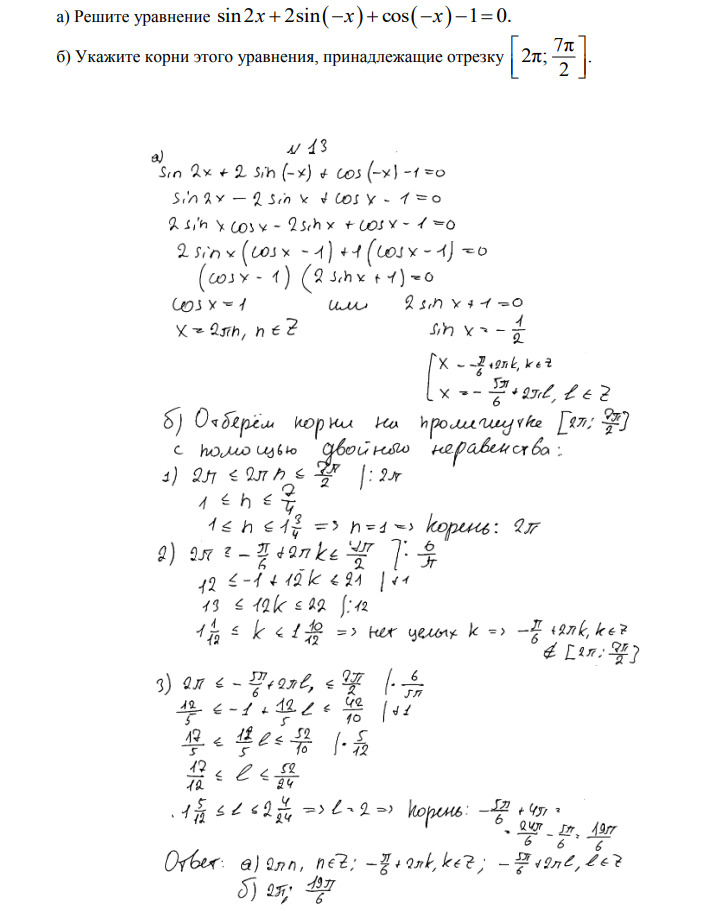 а) Решите уравнение sin2x + 2sin(−x) + cos(−x) − 1 = 0.
б) Укажите корни этого уравнения, принадлежащие отрезку [2π; 7π/2].
N 13
а)
sin 2x + 2 sin(-x) + cos(-x) - 1 = 0
sin 2x - 2 sin x + cos x - 1 = 0
2 sin x cos x - 2 sin x + cos x - 1 = 0
2 sin x (cos x - 1) + 1 (cos x - 1) = 0
(cos x - 1) (2 sin x + 1) = 0
cos x = 1 или 2 sin x + 1 = 0
x = 2πn, n ∈ Z sin x = - 1/2
[ x = - π/6 + 2πk, k ∈ Z
x = - 5π/6 + 2πl, l ∈ Z
б) Отберём корни на промежутке [2π; 7π/2]
с помощью двойного неравенства:
1) 2π ≤ 2πn ≤ 7π/2 |: 2π
1 ≤ n ≤ 7/4
1 ≤ n ≤ 1 3/4 => n = 1 => корень: 2π
2) 2π ≤ - π/6 + 2πk ≤ 7π/2 ]: 6/π
12 ≤ -1 + 12k ≤ 21 | +1
13 ≤ 12k ≤ 22 |: 12
1 1/12 ≤ k ≤ 1 10/12 => нет целых k => - π/6 + 2πk, k ∈ Z
∉ [2π; 7π/2]
3) 2π ≤ - 5π/6 + 2πl, ≤ 7π/2 | · 6/5π
12/5 ≤ -1 + 12/5 l ≤ 42/10 | +1
17/5 ≤ 12/5 l ≤ 52/10 | · 5/12
17/12 ≤ l ≤ 52/24
1 5/12 ≤ l ≤ 2 4/24 => l = 2 => корень: - 5π/6 + 4π =
= 24π/6 - 5π/6 = 19π/6
Ответ: а) 2πn, n ∈ Z; - π/6 + 2πk, k ∈ Z; - 5π/6 + 2πl, l ∈ Z
б) 2π; 19π/6